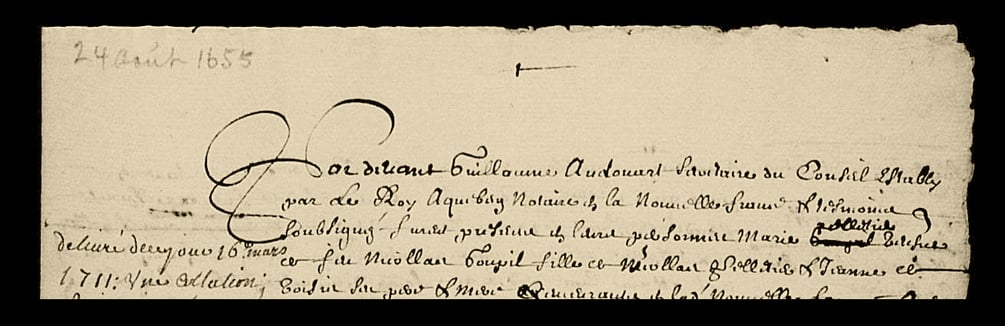 24 août 1655
Par devant Guillaume Audouart Secretaire du Conseil Estably
par Le Roy a quebeq Notaire en la Nouvelle france & tesmoins
soubsignez furent presens en leurs personnes Marie pelletier Goupil vesfue
de feu Nicollas Goupil fille de Nicollas Pelletier & Jeanne de
Voisir ses pere & mere demeurants en lad. Nouvelle
delivré de ce jour 16e mars
1711: Une collation